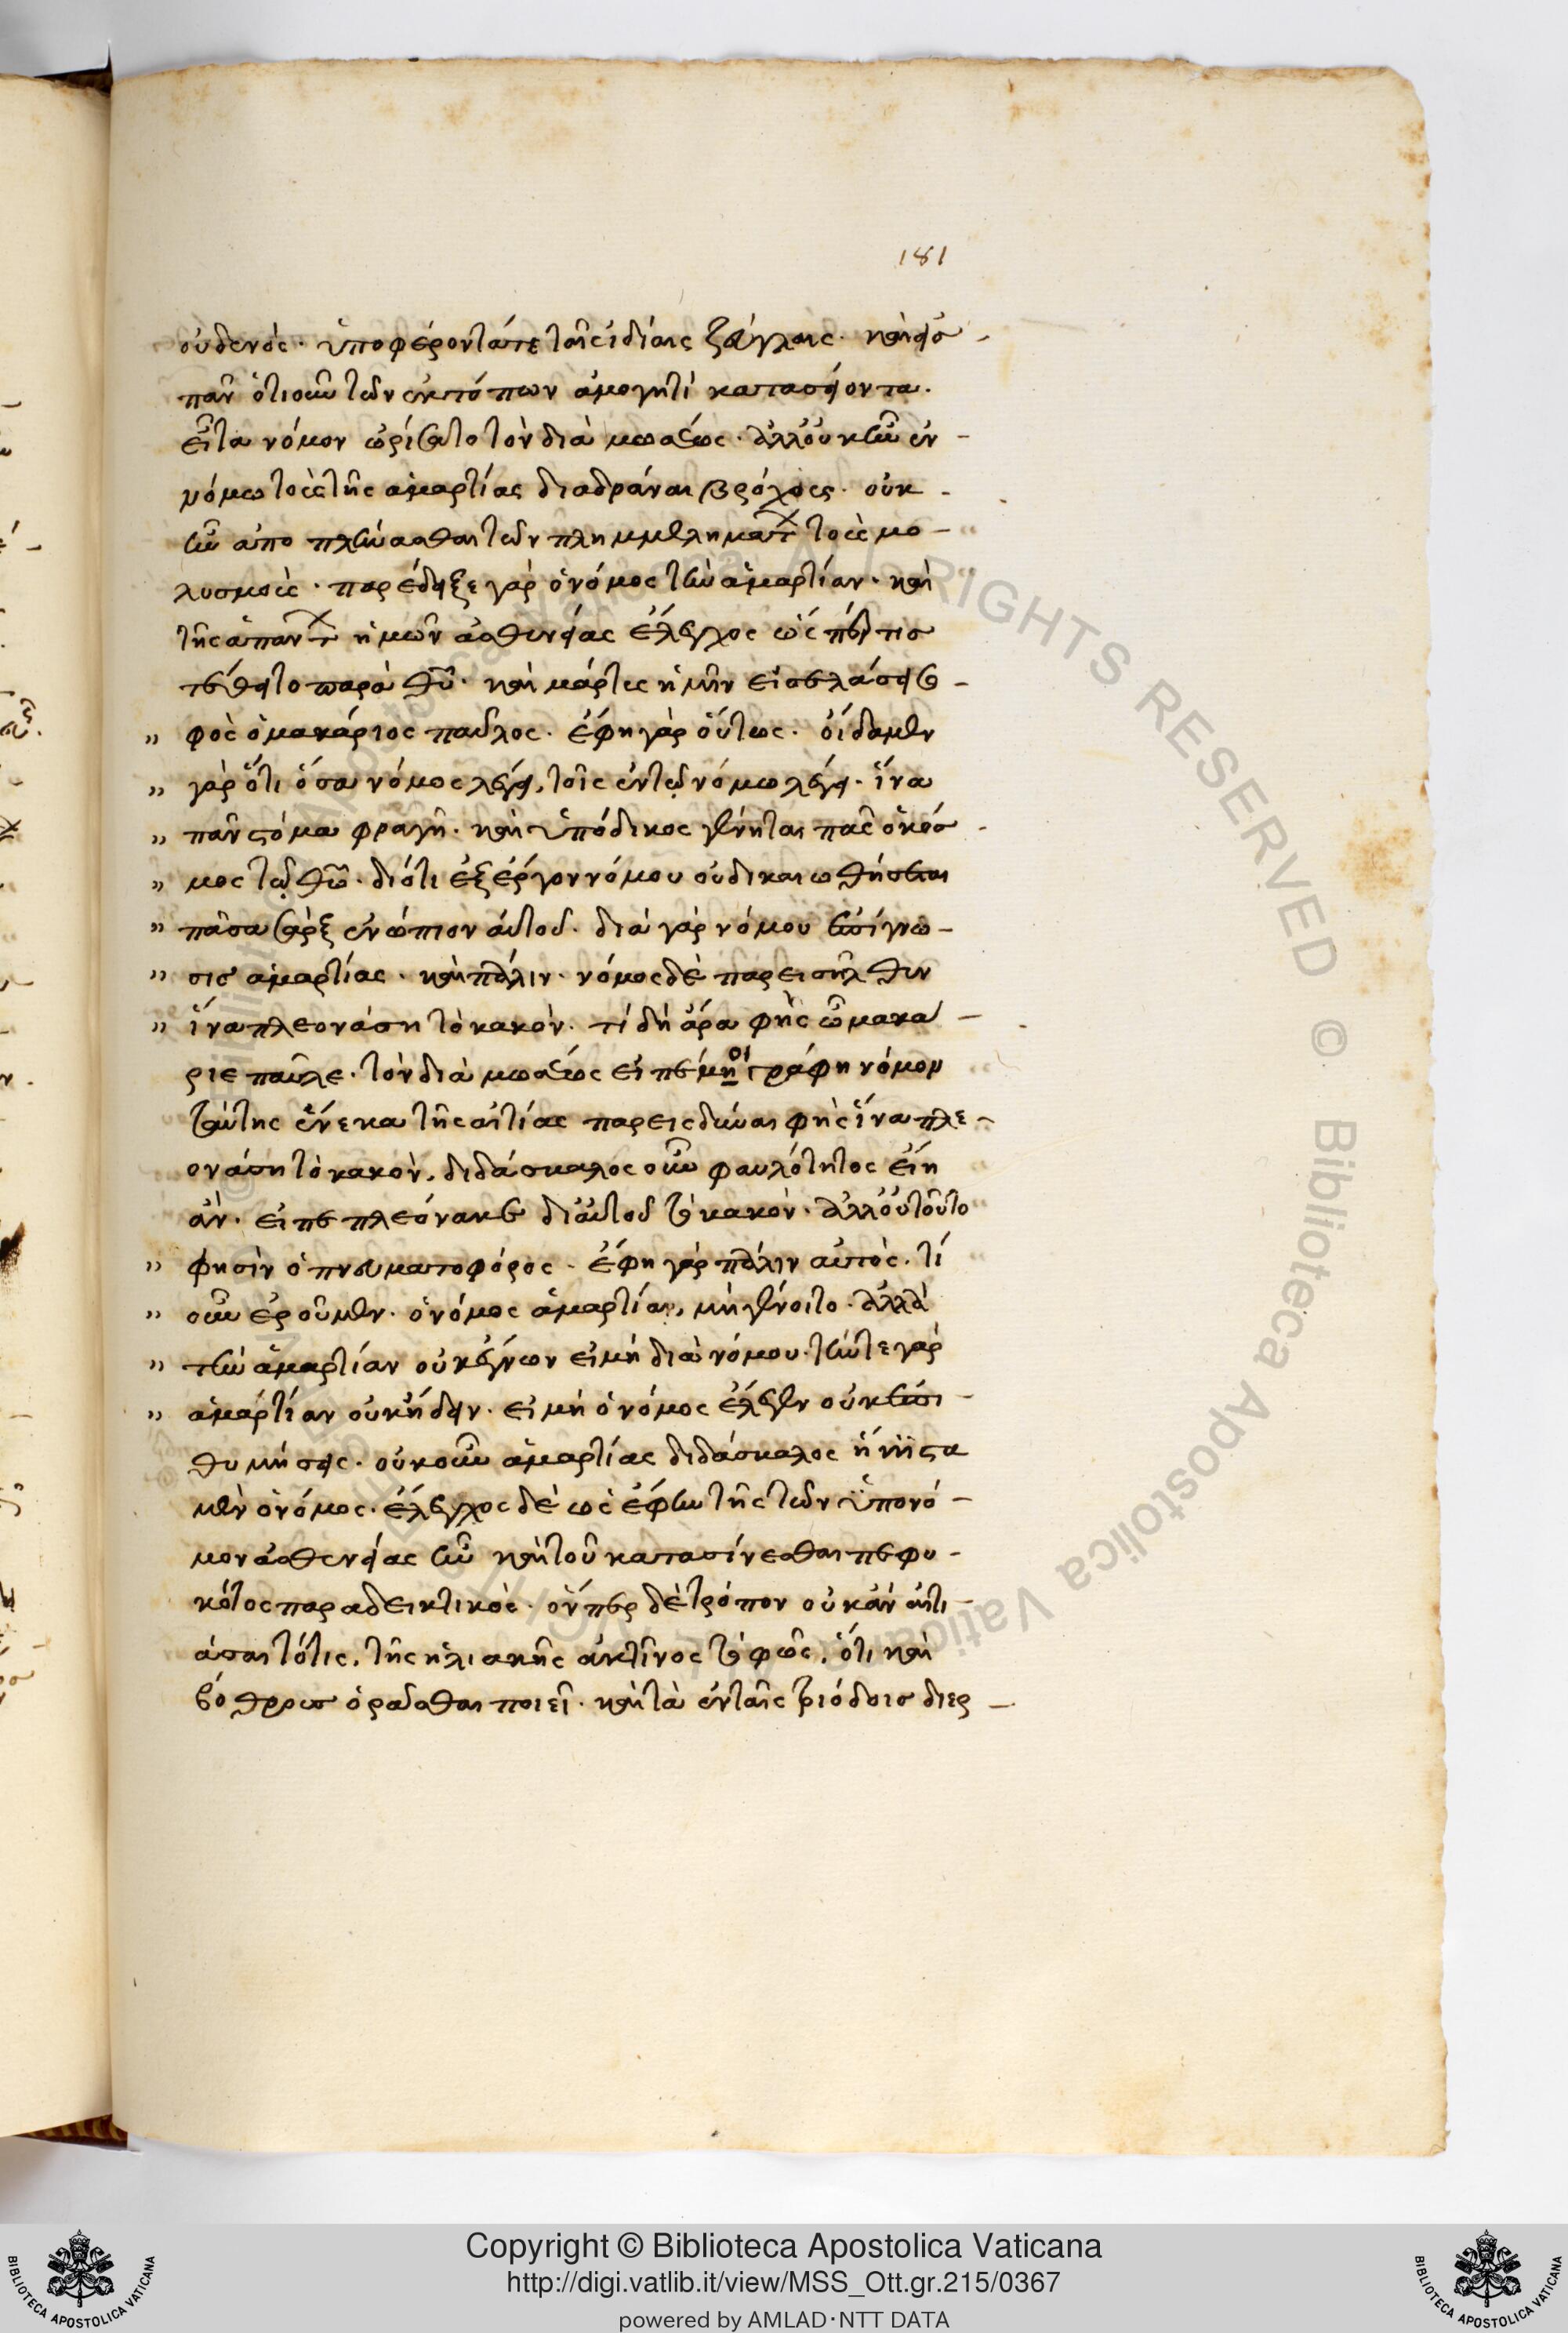 181
οὐδενὸς· ὑποφέροντά τε ταῖς ἰδίαις ζεύγλαις· καὶ εἰσ
πᾶν ὁτιοῦν τῶν ἐκτόπων ἀμογητὶ κατασείοντα.
εἶτα νόμον ὡρίσατο τὸν διὰ μωσέως· ἀλλ' οὐκ ἦν ἐν
νόμω τοὺς τῆς ἁμαρτίας διαδρᾶναι βρόχους· οὐκ
ἦν ἀποπλύνασθαι τῶν πλημμελημάτ τοὺς μο
λυσμοὺς· παρέδειξε γὰρ ὁ νόμος τὴν ἁμαρτίαν· καὶ
τῆς ἁπάντ ἡμῶν ἀσθενείας ἔλεγχος ὥσπέρ τισ
τέθειτο παρὰ θυ· καὶ μάρτυς ἡμῖν εἰσελάσει σ
" φὸς ὁ μακάριος παῦλος· ἔφη γὰρ οὕτως· οἴδαμεν
" γὰρ ὅτι ὅσα νόμος λέγει, τοῖς ἐν τῷ νόμω λέγει· ἵνα
" πᾶν στόμα φραγῆ· καὶ ὑπόδικος γένηται πᾶς ὁ κόσ
" μος τῷ θω· διότι ἐξ ἔργον νόμου οὐ δικαιωθήσεται
" πᾶσα σὰρξ ἐνώπιον αὐτοῦ· διὰ γὰρ νόμου ἐπίγνω
" σις ἁμαρτίας· καὶ πάλιν· νόμος δὲ παρεισῆλθεν
" ἵνα πλεονάση τὸ κακὸν· τί δὴ ἄρα φῂς ὦ μακά
ριε παῦλε· τὸν διὰ μωσέως εἰπέ μοι γράφη νόμον
ταύτης ἕνεκα τῆς αἰτίας παρεισδῦναι φῂς ἵνα πλε
ονάση τὸ κακὸν, διδάσκαλος οὖν φαυλότητος εἴη
ἂν· εἴπε πλεόνακε δι' αὐτοῦ τὸ κακὸν· ἀλλ' οὐ τοῦτο
" φησὶν ὁ πνευματοφόρος· ἔφη γὰρ πάλιν αὐτὸς· τί
" οὖν ἐροῦμεν· ὁ νόμος ἁμαρτία, μὴ γένοιτο· ἀλλὰ
" τὴν ἁμαρτίαν οὐκ ἔγνων εἰ μὴ διὰ νόμου· τήν τε γὰρ
" ἁμαρτίαν οὐκ ἤδειν· εἰ μὴ ὁ νόμος ἔλεγεν οὐκ ἐπι
θυμήσεις· οὐκοῦν ἁμαρτίας διδάσκαλος ἥκιστα
μὲν ὁ νόμος· ἔλεγχος δὲ ὡς ἔφην τῆς τῶν ὑπονό
μον ἀσθενείας ἦν καὶ τοῦ κατασίνεσθαι πεφυ
κότος παραδεικτικὸς· ὅνπερ δὲ τρόπον οὐκ ἂν αἰτι
άσαιτό τις, τῆς ἡλιακῆς ἀκτῖνος τὸ φῶς, ὅτι καὶ
βόθρουσ ὁρᾶσθαι ποιεῖ· καὶ τὰ ἐν ταῖς τριόδοισ διερ
Copyright © Biblioteca Apostolica Vaticana
http://digi.vatlib.it/view/MSS_Ott.gr.215/0367
powered by AMLAD·NTT DATA